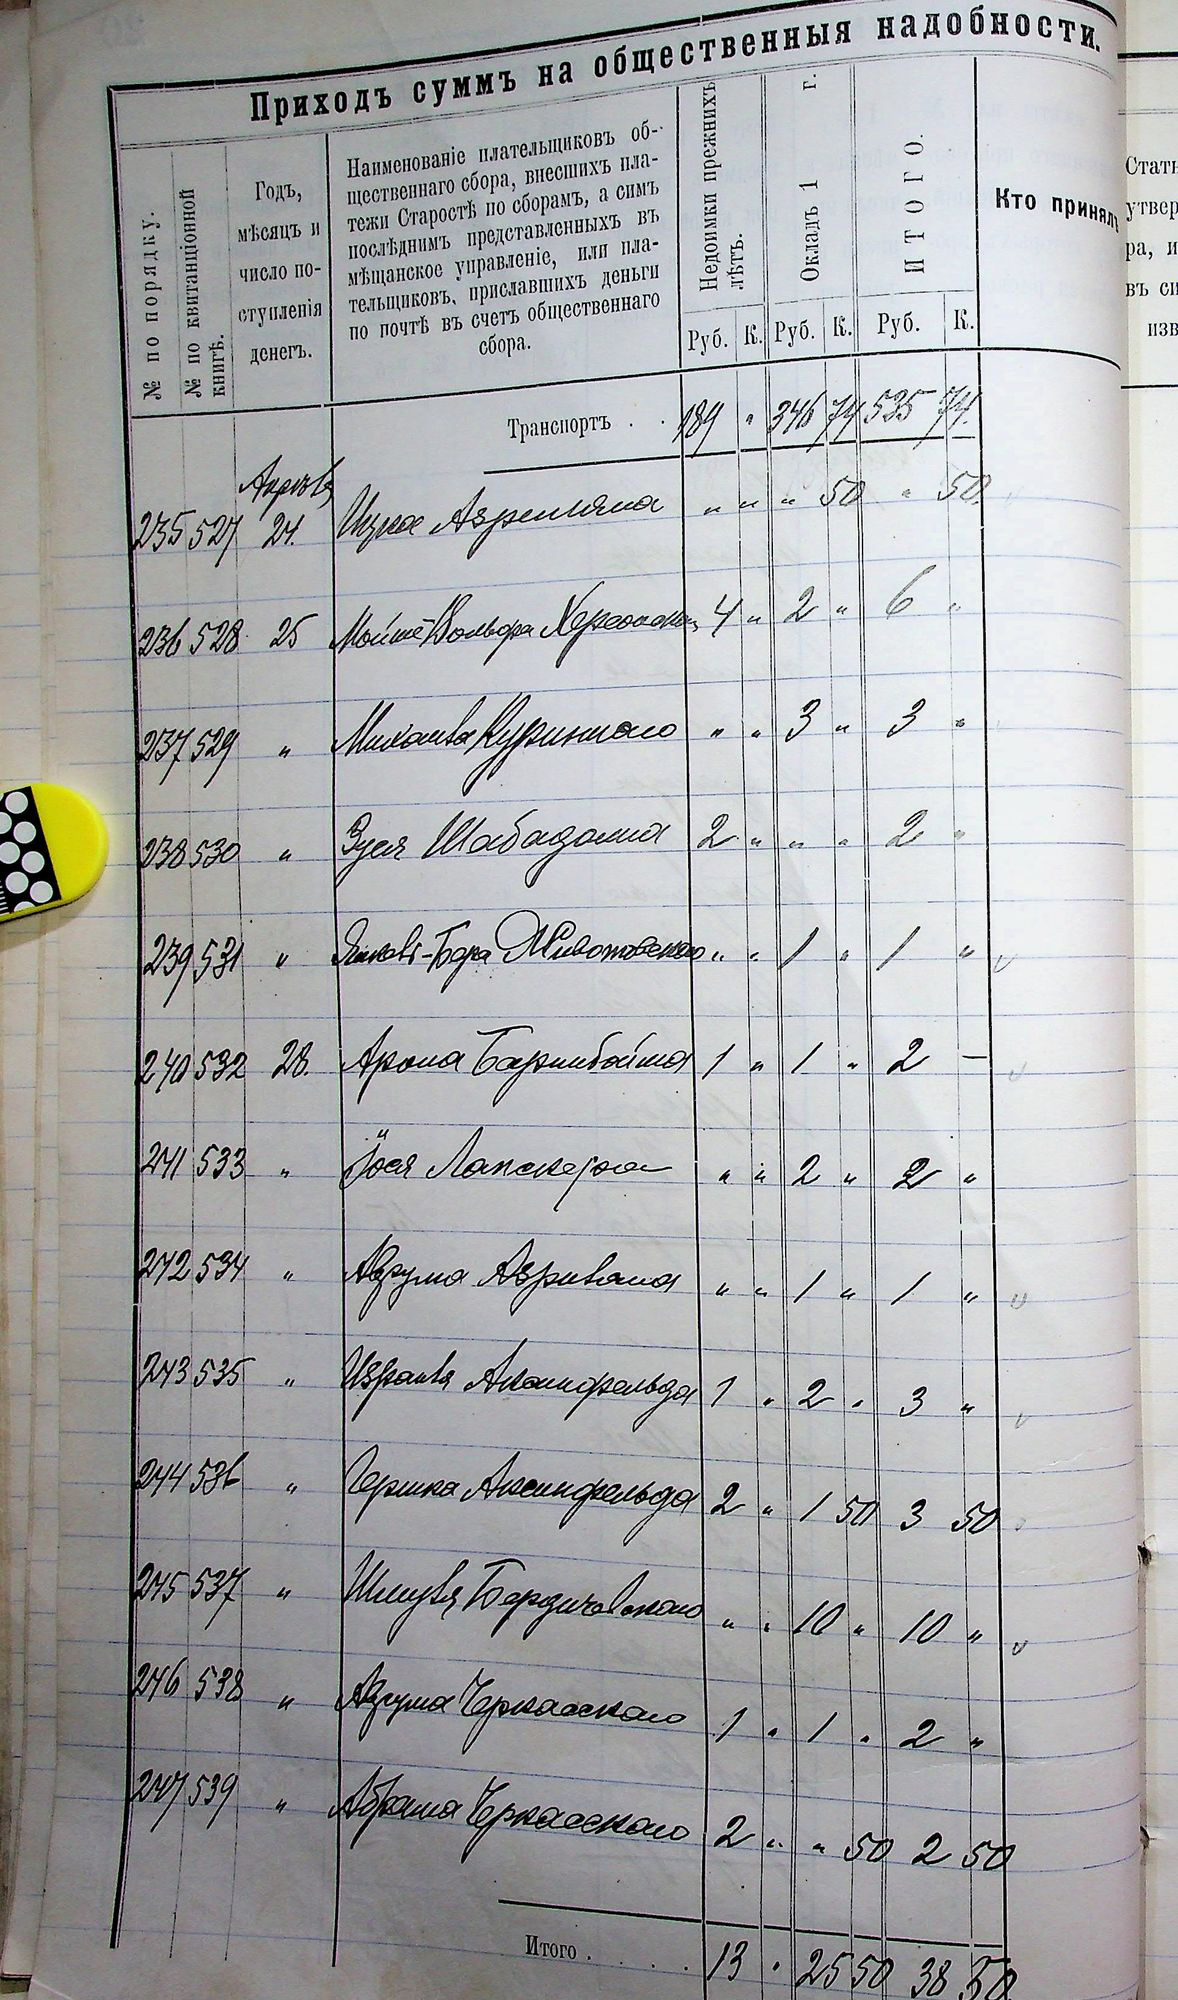 Приходъ суммъ на общественныя надобности.
№ по порядку.
№ по квитанціонной книгѣ.
Годъ,
мѣсяцъ и
число по-
ступленія
денегъ.
Наименованіе плательщиковъ об-
щественнаго сбора, внесшихъ пла-
тежи Старостѣ по сборамъ, а симъ
послѣднимъ представленныхъ въ
мѣщанское управленіе, или пла-
тельщиковъ, приславшихъ деньги
по почтѣ въ счетъ общественнаго
сбора.
Недоимки прежнихъ лѣтъ.
Окладъ 1 г.
ИТОГО.
Кто принялъ
Руб. К. Руб. К. Руб. К.
Транспортъ . . 189 " 346 74 535 74.
Апрѣля
235 527 24. Ицка " " " 50 " 50
236 528 25 Мойше Вольфа Херсонскаго 4 " 2 " 6 "
237 529 " Михаила " " 3 " 3 "
238 530 " Зуся Шабадаша 2 " " " 2 "
239 531 " Янкова-Бера Животовскаго " " 1 " 1 "
240 532 28. Арона 1 " 1 " 2 —
241 533 " Іося " " 2 " 2 "
242 534 " Аврума " " 1 " 1 "
243 535 " Израиля Аксинфельда 1 " 2 " 3 "
244 536 " Гершка Аксинфельда 2 " 1 50 3 50
245 537 " Шмуля Бердичевскаго " " 10 " 10 "
246 538 " Аврума Черкасскаго 1 " 1 " 2 "
247 539 " Абрама Черкасскаго 2 " " 50 2 50
Итого . . . . . 13 " 25 50 38 50
Стать
утвер
ра, и
въ си
изв